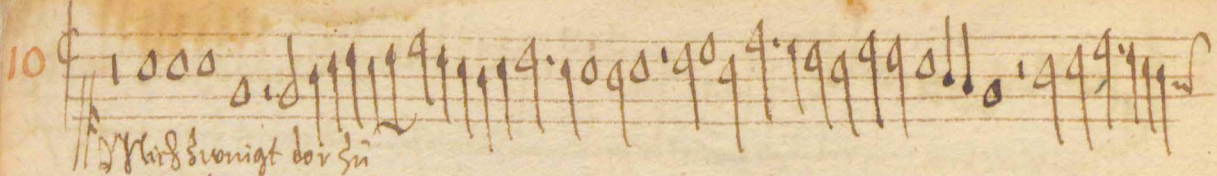 10
Mich zwingt dor zů